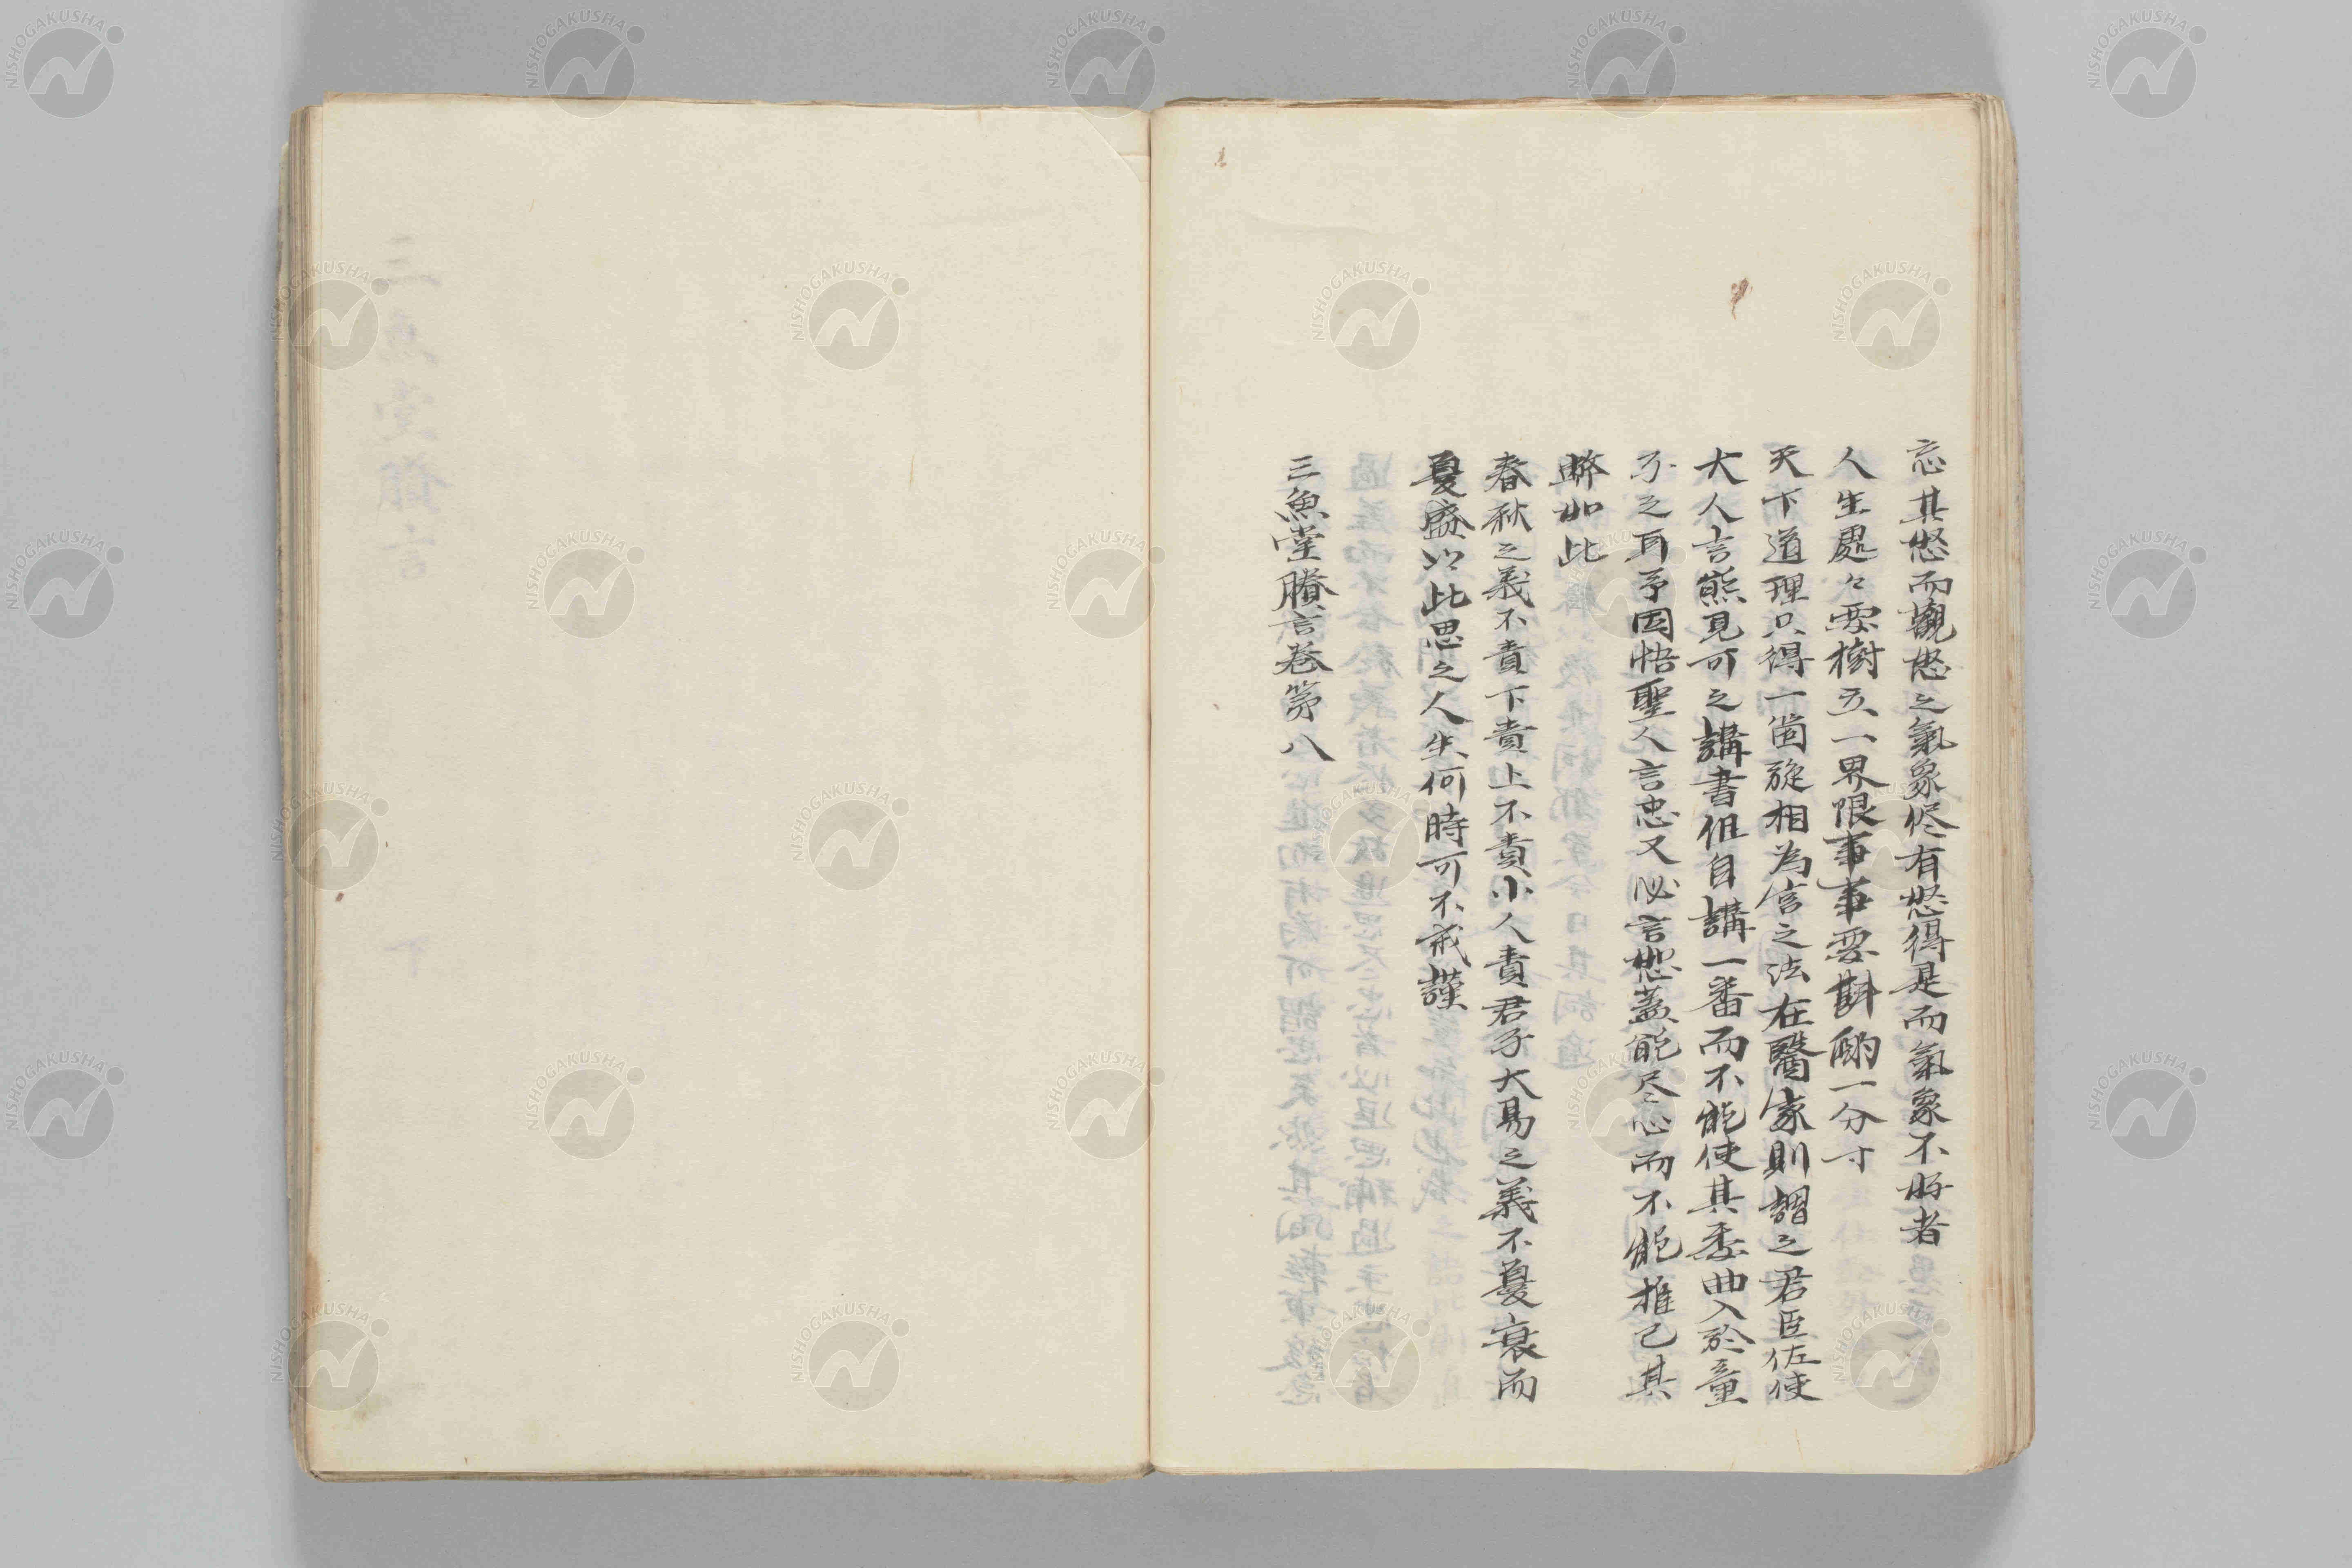 忘其怒而觀怒之氣象侭有怒得是而氣象不好者
人生處々要樹立一界限事事要斟酌一分寸
天下道理只得一箇旋相為宮之法在醫家則謂之君臣佐使
大人言熊見可之講書但自講一番而不能使其委曲入於童
子之耳予因悟聖人言忠又必言恕蓋能尽心而不能推己其
弊如此
春秋之義不責下責上不責小人責君子大易之義不憂衰而
憂盛以此思之人生何時可不戒謹
三魚堂賸言巻第八
NISHOGAKUSHA